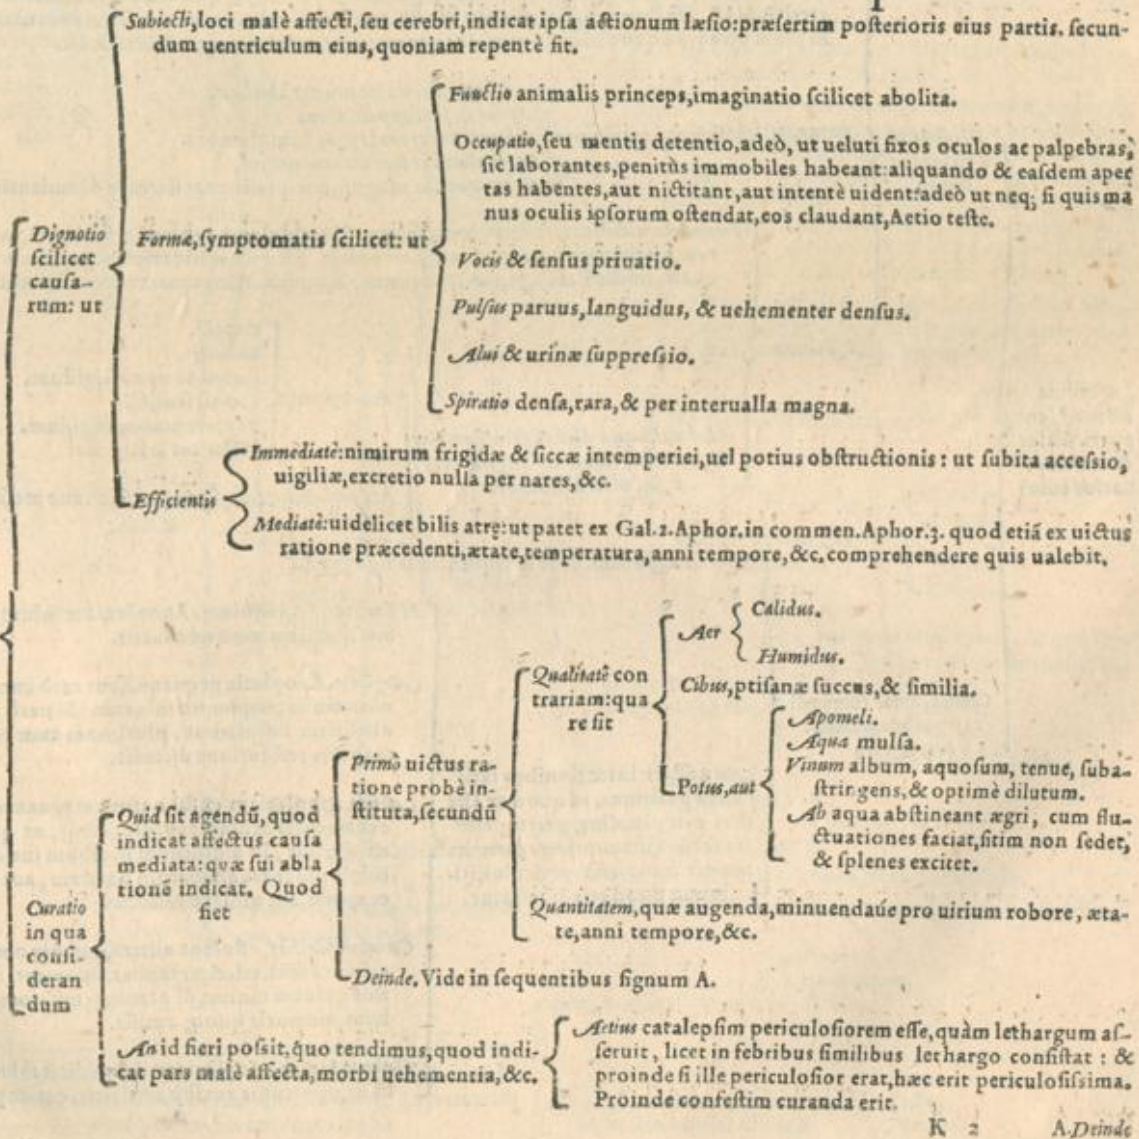 Subiecti, loci malè affecti, seu cerebri, indicat ipsa actionum læsio: præsertim posterioris eius partis. secun-
dum uentriculum eius, quoniam repentè fit.
Functio animalis princeps, imaginatio scilicet abolita.
Occupatio, seu mentis detentio, adeò, ut ueluti fixos oculos ac palpebras,
sic laborantes, penitùs immobiles habeant: aliquando & easdem aper
tas habentes, aut nictitant, aut intentè uident: adeò ut neq; si quis ma
nus oculis ipsorum ostendat, eos claudant, Aetio teste.
Dignotio
scilicet
causa-
rum: ut
Formæ, symptomatis scilicet: ut
Vocis & sensus priuatio.
Pulsus paruus, languidus, & uehementer densus.
Alui & urinæ suppressio.
Spiratio densa, rara, & per interualla magna.
Efficientis
Immediatè: nimirum frigidæ & siccæ intemperiei, uel potius obstructionis: ut subita accessio,
uigiliæ, excretio nulla per nares, &c.
Mediatè: uidelicet bilis atrę: ut patet ex Gal. 2. Aphor. in commen. Aphor. 3. quod etiā ex uictus
ratione præcedenti, ætate, temperatura, anni tempore, &c. comprehendere quis ualebit.
Curatio
in qua
consi-
deran
dum
Quid sit agendū, quod
indicat affectus causa
mediata: quæ sui abla
tionē indicat. Quod
fiet
Primò uictus ra-
tione probè in-
stituta, secundū
Qualitatē con
trariam: qua
re sit
Aer
Calidus.
Humidus.
Cibus, ptisanæ succus, & similia.
Potus, aut
Apomeli.
Aqua mulsa.
Vinum album, aquosum, tenue, suba-
stringens, & optimè dilutum.
Ab aqua abstineant ægri, cum flu-
ctuationes faciat, sitim non sedet,
& splenes excitet.
Quantitatem, quæ augenda, minuendaúe pro uirium robore, æta-
te, anni tempore, &c.
Deinde. Vide in sequentibus signum A.
An id fieri possit, quo tendimus, quod indi-
cat pars malè affecta, morbi uehementia, &c.
Aetius catalepsim periculosiorem esse, quàm lethargum as-
seruit, licet in febribus similibus lethargo consistat: &
proinde si ille periculosior erat, hæc erit periculosissima.
Proinde confestim curanda erit.
K 2 A. Deinde